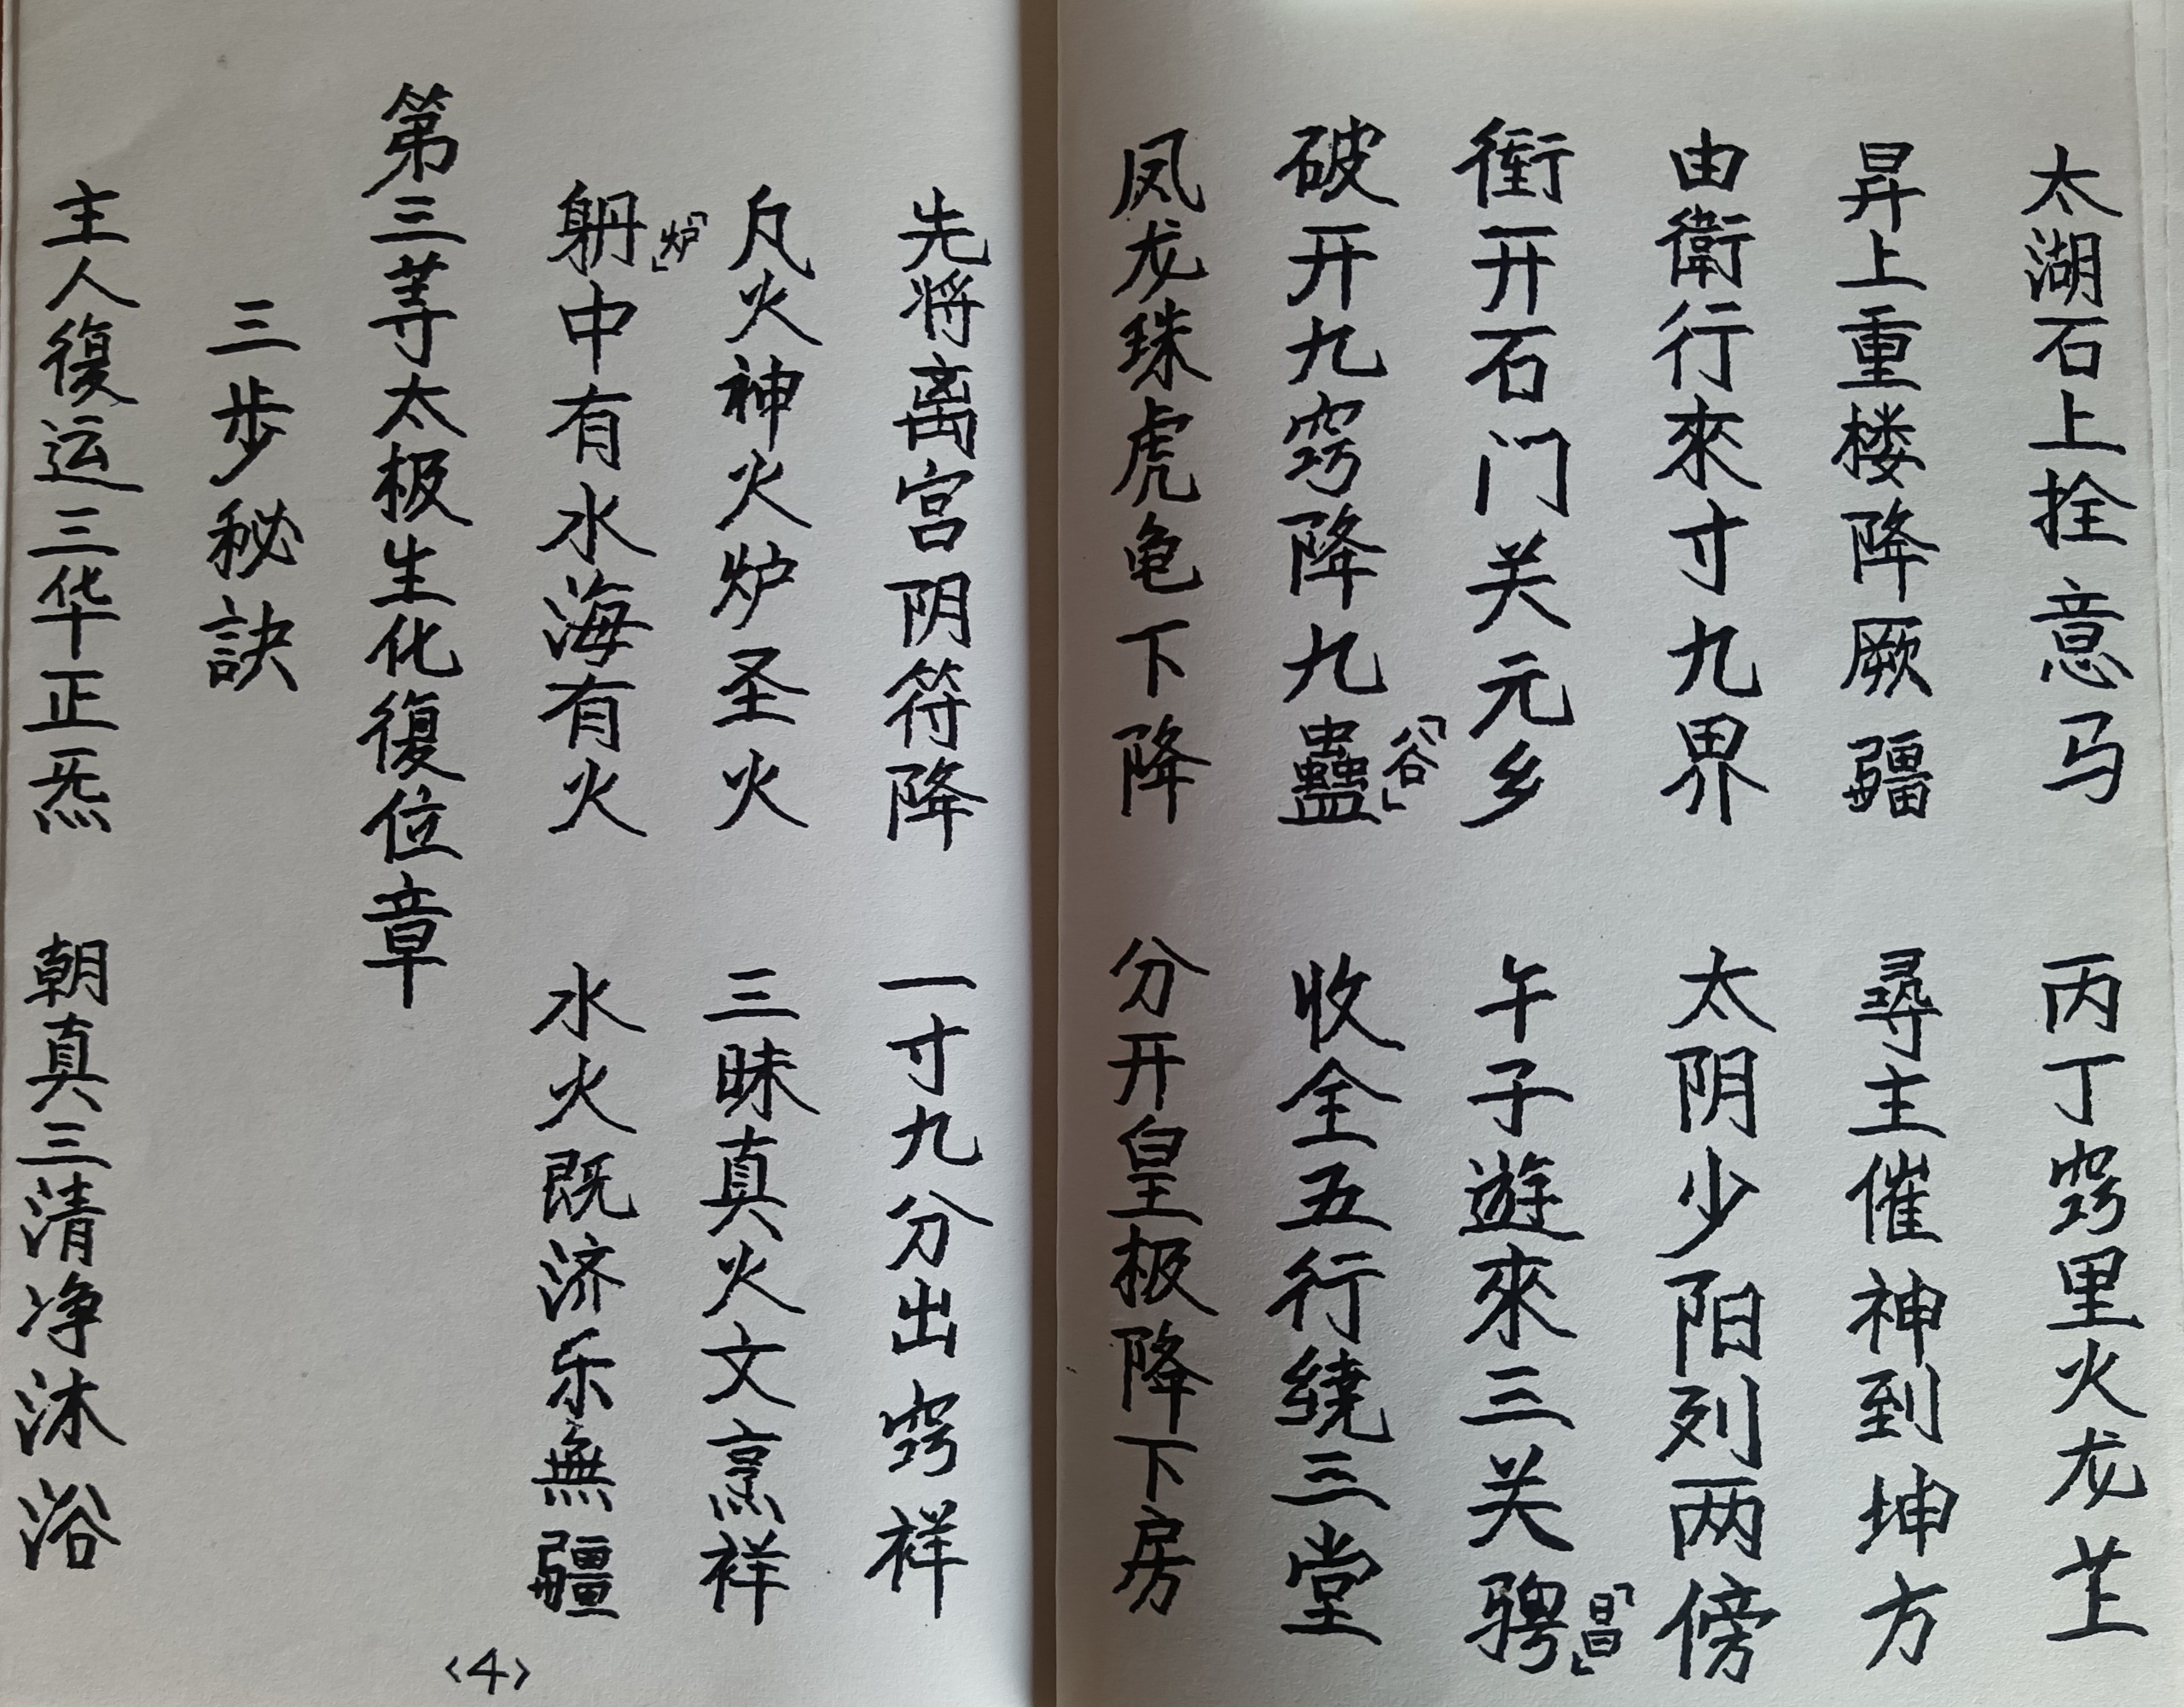 太湖石上拴意马 丙丁窍里火龙芷
昇上重楼降厥疆 尋主催神到坤方
由衛行來寸九界 太阴少阳列两傍
衝开石门关元乡 午子遊來三关骋「日昌」
破开九窍降九蠱「谷」 收全五行绕三堂
凤龙珠虎龟下降 分开皇极降下房
先将离宫阴符降 一寸九分出窍祥
凡火神火炉圣火 三昧真火文烹祥
中有水海有火「炉」 水火既济乐無疆
第三等太极生化復位章
三步秘訣
主人復运三华正炁 朝真三清净沐浴
<4>